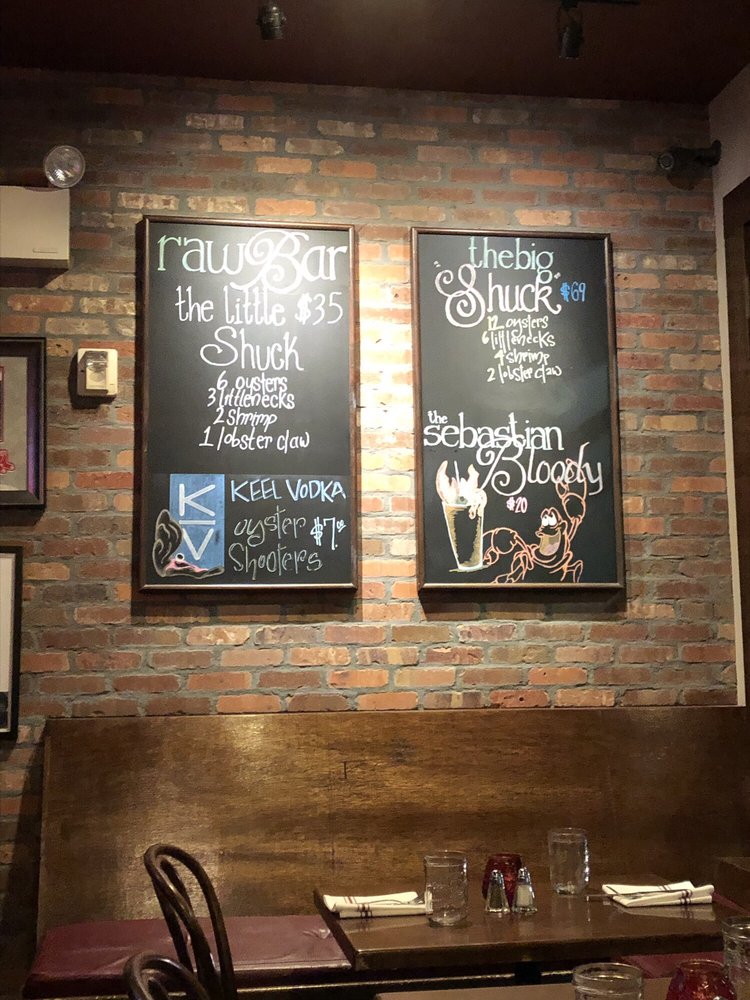 raw Bar
the little $35
Shuck
6 oysters
3 littlenecks
2 shrimp
1 lobster claw
KV
KEEL VODKA
oyster $7.00
Shooters
the big
"Shuck" $69
12 oysters
6 littlenecks
4 shrimp
2 lobster claw
the
sebastian
Bloody
$20